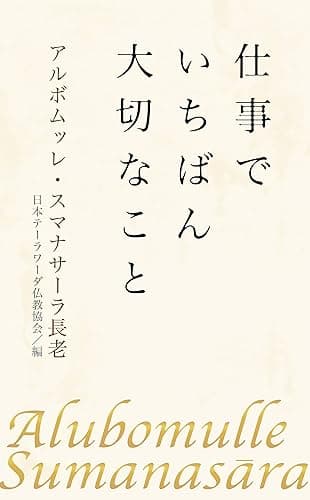 仕事で
いちばん
大切なこと
アルボムッレ・スマナサーラ長老
日本テーラワーダ仏教協会／編
Alubomulle
Sumanasāra